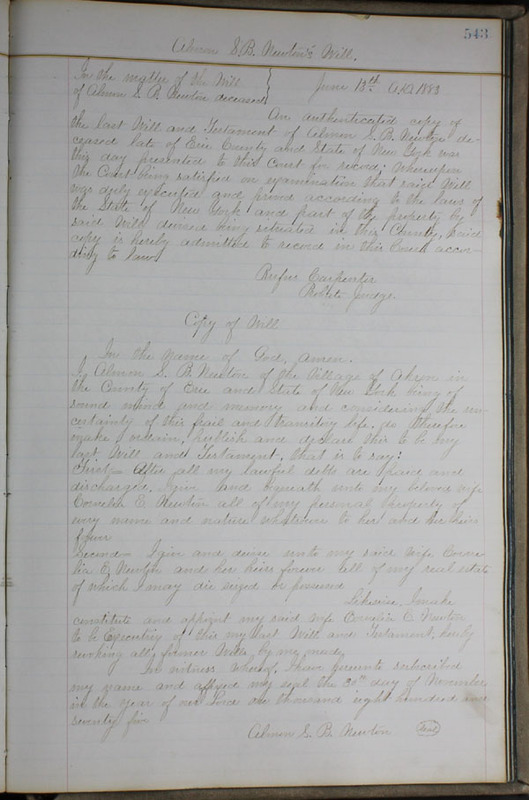 543
Almon S. B. Newton's Will.
In the matter of the Will
of Almon S. B. Newton deceased
June 13th A.D. 1883
An authenticated copy of
the last Will and Testament of Almon S. B. Newton de-
ceased late of Erie County and State of New York was
this day presented to this Court for record; Whereupon
the Court being satisfied on examination that said Will
was duly executed and proved according to the laws of
the State of New York and part of the property by
said Will devised being situated in this County, said
copy is hereby admitted to record in this Court accor-
ding to law.
Rufus Carpenter
Probate Judge.
Copy of Will
In the name of God, amen.
I, Almon S. B. Newton of the Village of Akron in
the County of Erie and State of New York being of
sound mind and memory and considering the un-
certainty of this frail and transitory life, do therefore
make, ordain, publish and declare this to be my
last Will and Testament, that is to say:
First - After all my lawful debts are paid and
discharged, I give and bequeath unto my beloved wife
Cornelia E. Newton all of my personal property of
every name and nature whatsoever to her and her heirs
forever
Second - I give and devise unto my said wife Corne-
lia E. Newton and her heirs forever all of my real estate
of which I may die seized or possessed
Likewise, I make
constitute and appoint my said wife Cornelia E. Newton
to be Executrix of this my last Will and Testament, hereby
revoking all former Wills by me made.
In witness whereof, I have hereunto subscribed
my name and affixed my seal the 30th day of November
in the year of our Lord one thousand eight hundred and
seventy five
Almon S. B. Newton Seal